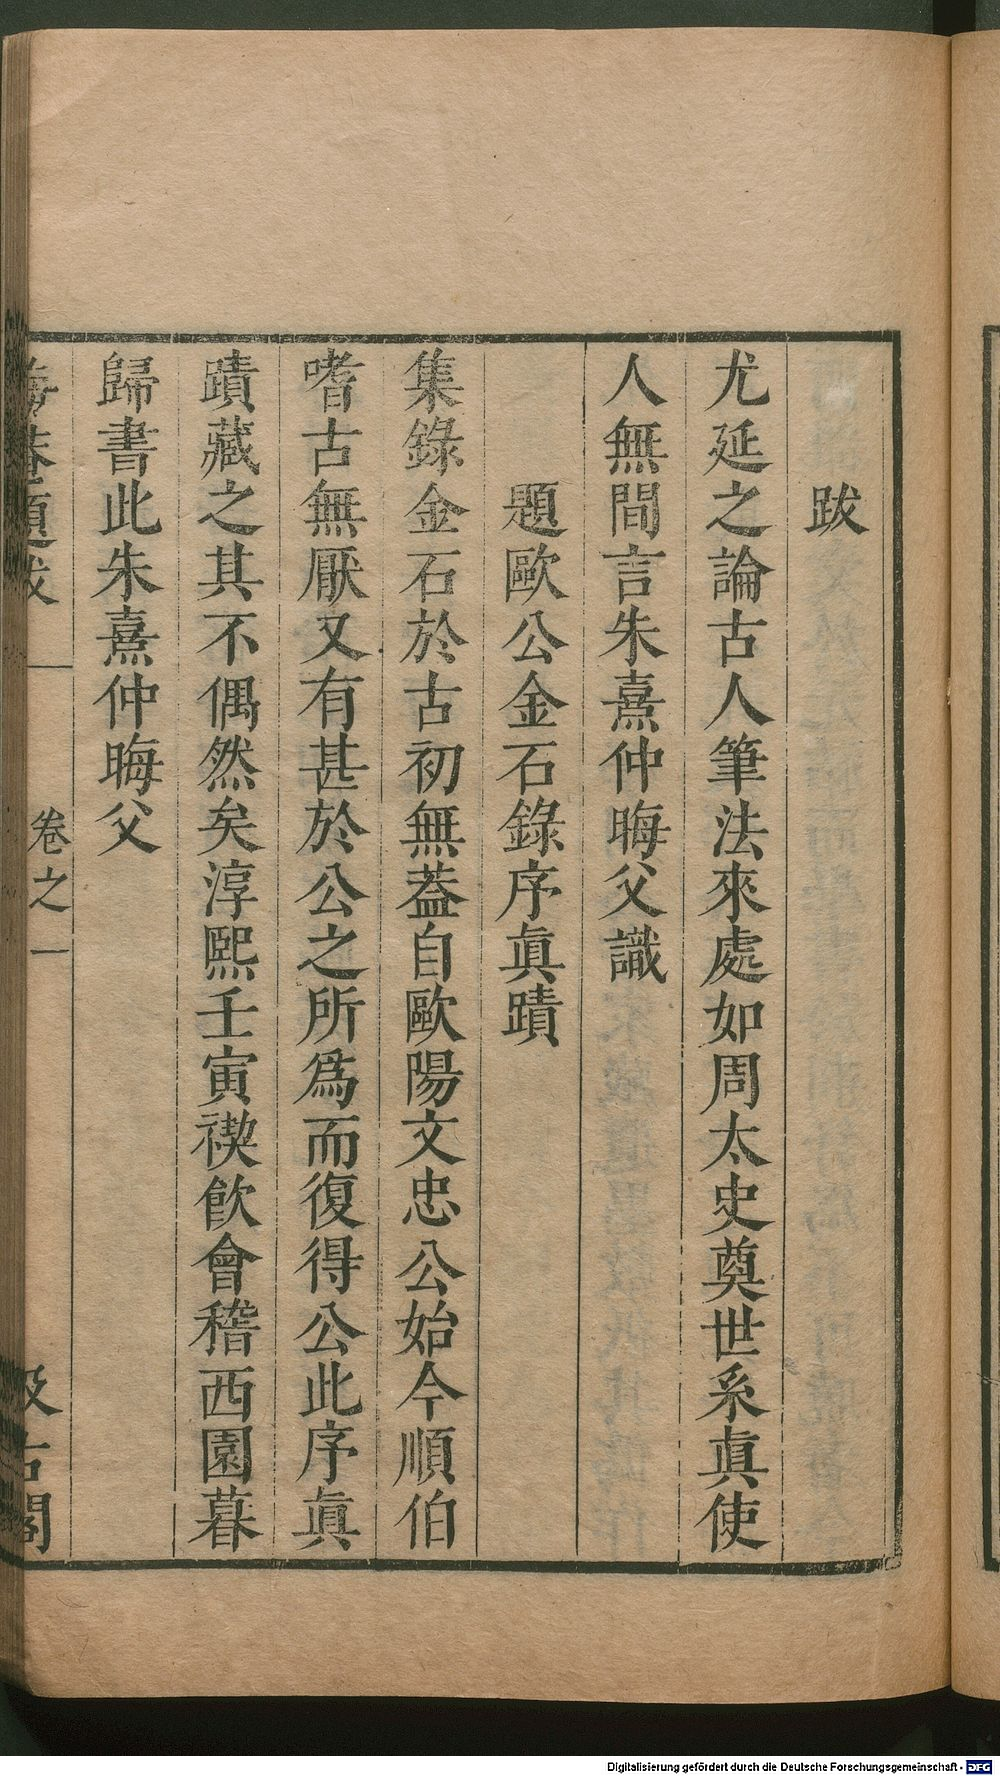 跋
尤延之論古人筆法來處如周太史奠世系眞使
人無間言朱熹仲晦父識
題歐公金石錄序眞蹟
集錄金石於古初無葢自歐陽文忠公始今順伯
嗜古無厭又有甚於公之所爲而復得公此序眞
蹟藏之其不偶然矣淳熙壬寅禊飮會稽西園暮
歸書此朱熹仲晦父
晦菴題跋
卷之一
汲古閣
Digitalisierung gefördert durch die Deutsche Forschungsgemeinschaft - DFG